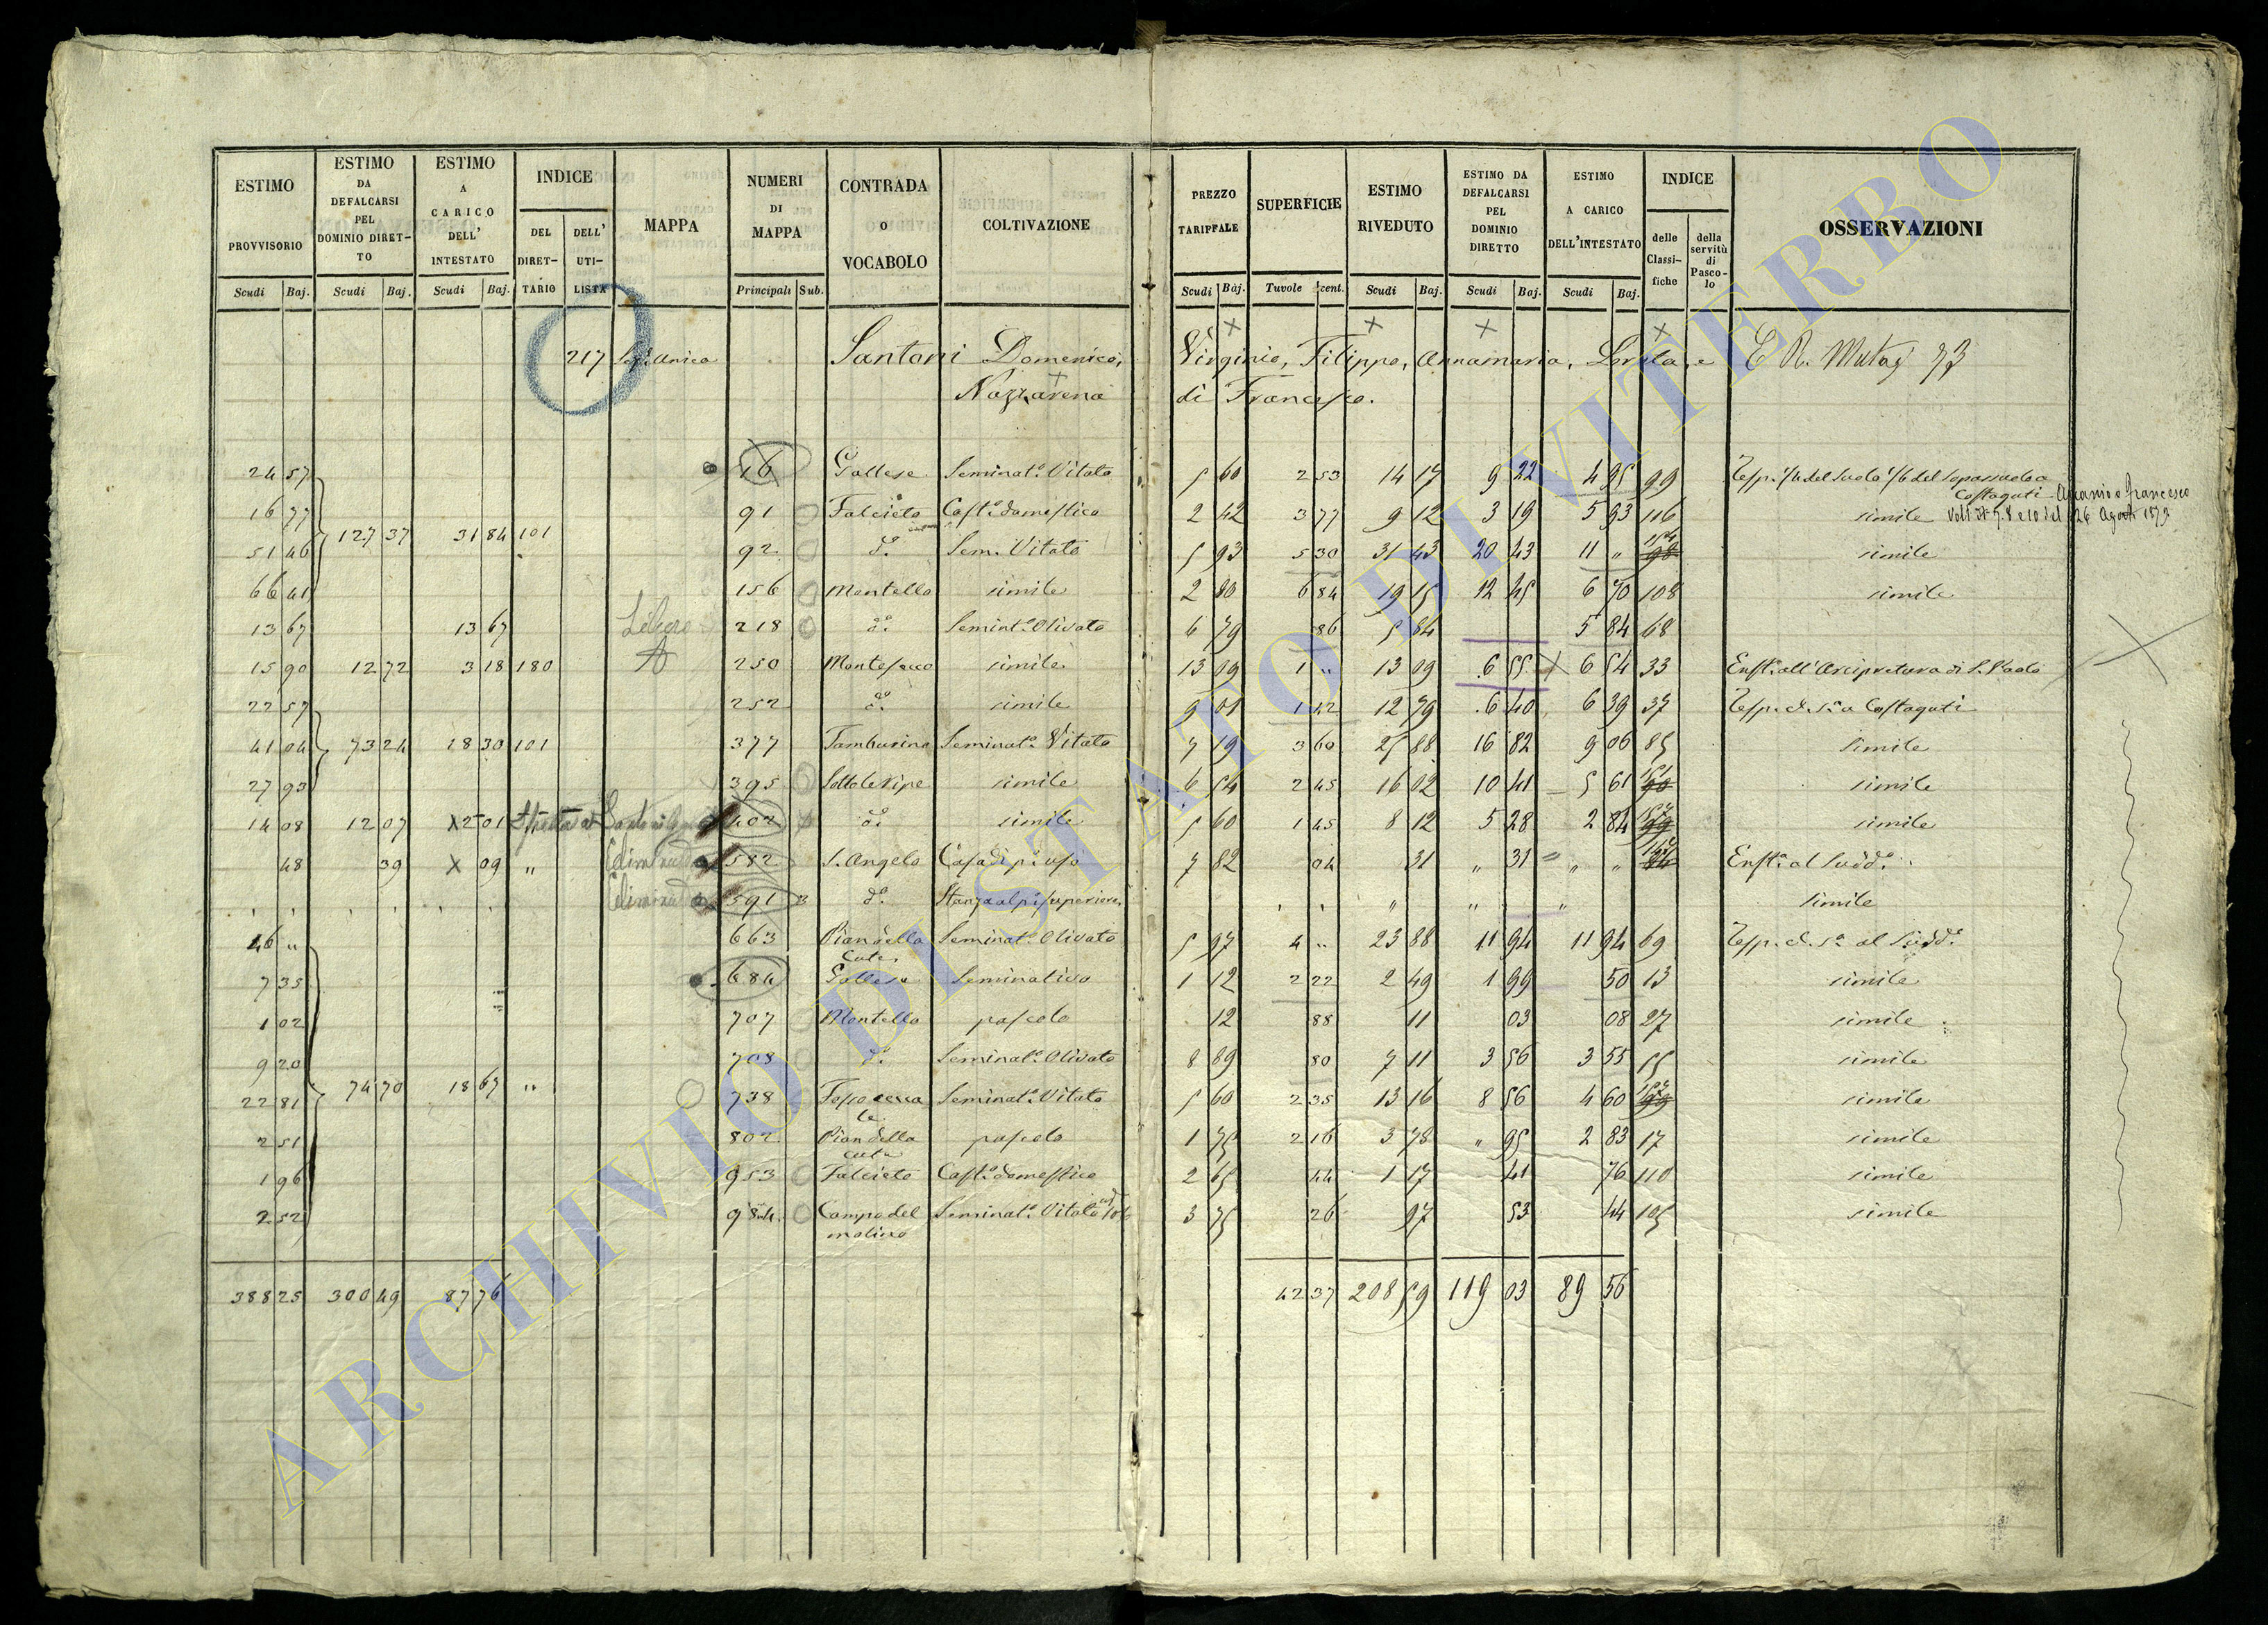 ESTIMO PROVVISORIO Scudi Baj.
ESTIMO DA DEFALCARSI PEL DOMINIO DIRET- TO Scudi Baj.
ESTIMO A CARICO DELL' INTESTATO Scudi Baj.
INDICE DEL DIRET- TARIO DELL' UTI- LISTA
MAPPA
NUMERI DI MAPPA Principali Sub.
CONTRADA o VOCABOLO
COLTIVAZIONE
PREZZO TARIFFALE Scudi Baj.
SUPERFICIE Tavole cent.
ESTIMO RIVEDUTO Scudi Baj.
ESTIMO DA DEFALCARSI PEL DOMINIO DIRETTO Scudi Baj.
ESTIMO A CARICO DELL'INTESTATO Scudi Baj.
INDICE delle Classi- fiche della servitù di Pasco- lo
OSSERVAZIONI
217 Santoni Domenico, Virginio, Filippo, Annamaria, e
Nazzarena di Francesco.
24 57 16 Gallese Seminat.o Vitato 5 60 2 53 14 17 9 22 4 95 99
16 77 91 Falcieto Cast.o domestico 2 42 3 77 9 12 3 19 5 93 116 simile
127 37 31 84 101
51 46 92 d.o Sem. Vitato 5 93 5 30 31 43 20 43 11 „ simile
66 41 156 Montello simile 2 80 6 84 19 15 12 45 6 70 108 simile
13 67 13 67 Libero 218 d.o Semint.o Olivato 6 79 86 5 84 5 84 68
15 90 12 72 3 18 180 A 250 Montesecco simile 13 09 1 „ 13 09 6 55 6 54 33 Enft.o all'Arcipretura di S. Paolo
22 57 252 d.o simile 9 01 1 42 12 79 6 40 6 39 37
41 04 73 24 18 30 101 377 Tamburino Seminat.o Vitato 7 19 3 60 25 88 16 82 9 06 85 simile
27 93 395 Sottoleripe simile 6 54 2 45 16 02 10 41 5 61 simile
14 08 12 07 X 2 01 402 d.o simile 5 60 1 45 8 12 5 28 2 84 simile
48 39 X 09 „ 582 S. Angelo Casa di p.o uso 7 82 04 31 „ 31 „ „ Enft.o al Sudd.o
591 d.o simile
46 „ 663 Piandella Cute Seminat.o Olivato 5 97 4 „ 23 88 11 94 11 94 69
7 35 684 Gallese Seminativo 1 12 2 22 2 49 1 99 50 13 simile
1 02 707 Montello pascolo 12 88 11 03 08 27 simile
9 20 708 d.o Seminat.o Olivato 8 89 80 7 11 3 56 3 55 55 simile
74 70 18 67 „
22 81 738 Seminat.o Vitato 5 60 2 35 13 16 8 56 4 60 simile
2 51 802 Piandella cute pascolo 1 75 2 16 3 78 „ 95 2 83 17 simile
1 96 953 Falcieto Cast.o domestico 2 65 44 1 17 41 76 110 simile
2 52 984 Campo del molino Seminat.o Vitato 3 75 26 97 53 44 105 simile
388 25 300 49 87 76 42 37 208 59 119 03 89 56
ARCHIVIO DI STATO DI VITERBO